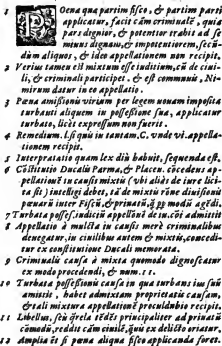 1 Poena qua partim fisco, & partim parti
applicatur, facit cām criminalē, quia
pars dignior, & potentior trahit ad se
minus dignam, & impotentiorem, secū-
dum aliquos, & ideo appellationem non recipit.
2 Verius tamen est mixtum esse iudicium, cū de ciui-
li, & criminali participet. & est communis, Ni-
mirum datur in eo appellatio.
3 Pœna amissionis virium per legem nouam imposita
turbanti aliquem in possessione sua, applicatur
turbato, licèt expressum non fuerit.
4 Remedium. l. si quis in tantam, C. vnde vi. appella-
tionem recipit.
5 Interpretatio quam lex diù habuit, sequenda est.
6 Cōstitutio Ducalis Parmæ, & Placen. cōcedens ap-
pellationē in causis mixtis (vbi aliàs de iure lici-
ta sit) intelligi debet, tā de mixtis rōne diuisionis
pœnarū inter Fiscū, & priuatū, q̄ pp modū agēdi.
7 Turbata possess. iudiciū appellōnē de iu. cōi admittit
8 Appellatio à multa in causis merè criminalibus
denegatur, in ciuilibus autem & mixtis, concedi-
tur ex constitutione Ducali memorata.
9 Criminalis causa à mixta quomodo dignoscatur
ex modo procedendi, & num. 11.
10 Turbata possessionis causa in qua turbans ius suū
amittit, habet admixtam proprietatis causam,
& tali mixtura appellationē proculdubio recipit.
11 Libellus, seu q̄rela tēdēs principaliter ad priuati
cōmodū, reddit cām ciuilē, quis ex delicto oriatur.
12 Amplia et si pœna aliqua fisco applicanda foret.